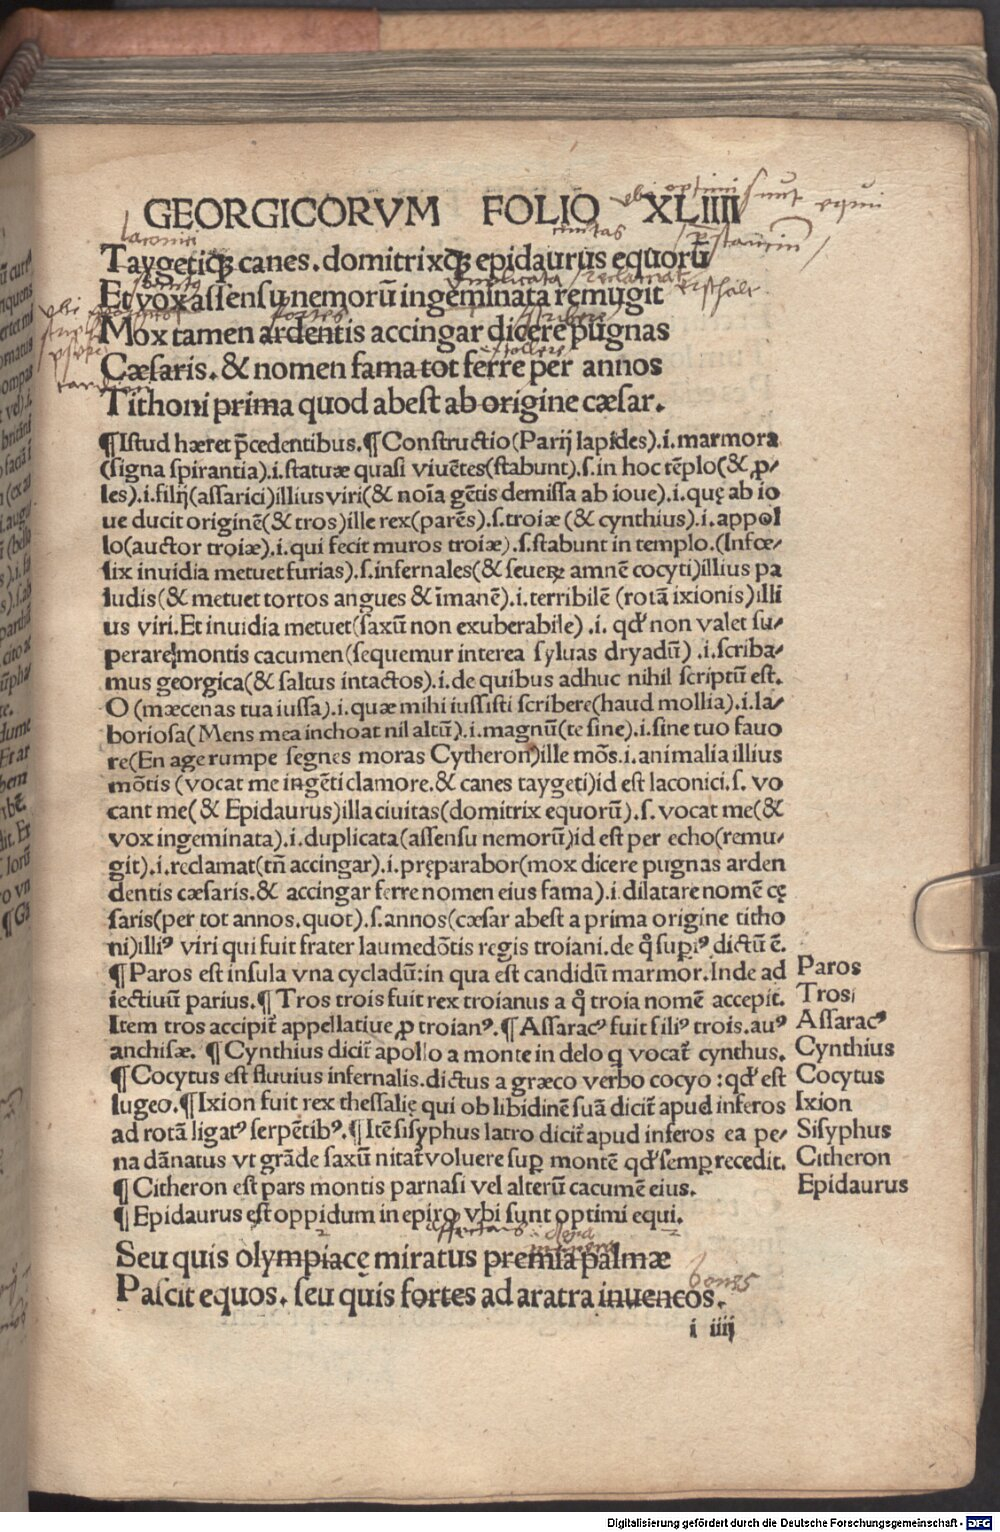 GEORGICORVM FOLIO XLIIII
ubi optimi sunt equi
laconici
ciuitas
Taygetiqꝫ canes. domitrixqꝫ epidaurus equorū
duplicata reclamat
Et vox assensu nemorū ingeminata remugit
fortes scribere
Mox tamen ardentis accingar dicere pugnas
extollere
Cæsaris. & nomen fama tot ferre per annos
Tithoni prima quod abest ab origine cæsar.
¶Istud hæret p̄cedentibus. ¶Constructio(Parij lapides).i.marmora
(signa spirantia).i.statuæ quasi viuētes(stabunt).s.in hoc tēplo(& ꝓ/
les).i.filij(assarici)illius viri(& noīa gētis demissa ab ioue).i.quę ab io
ue ducit originē(& tros)ille rex(parēs).s.troiæ (& cynthius).i.appol
lo(auctor troiæ).i.qui fecit muros troiæ).s.stabunt in templo.(Infœ/
lix inuidia metuet furias).s.infernales(& seueꝝ amnē cocyti)illius pa
ludis(& metuet tortos angues & īmanē).i.terribilē (rotā ixionis)illi
us viri.Et inuidia metuet(saxū non exuberabile) .i. qđ non valet su/
perare montis cacumen(sequemur interea syluas dryadū) .i.scriba/
mus georgica(& saltus intactos).i.de quibus adhuc nihil scriptū est.
O (mæcenas tua iussa).i.quæ mihi iussisti scribere(haud mollia).i.la/
boriosa(Mens mea inchoat nil altū).i.magnū(te sine).i.sine tuo fauo
re(En age rumpe segnes moras Cytheron)ille mōs.i.animalia illius
mōtis (vocat me ingēti clamore.& canes taygeti)id est laconici.s. vo
cant me(& Epidaurus)illa ciuitas(domitrix equorū).s. vocat me(&
vox ingeminata).i.duplicata(assensu nemorū)id est per echo(remu/
git).i.reclamat(tñ accingar).i.pręparabor(mox dicere pugnas arden
dentis cæsaris.& accingar ferre nomen eius fama).i dilatare nomē cę
saris(per tot annos.quot).s.annos(cæsar abest a prima origine titho
ni)illiꝰ viri qui fuit frater laumedōtis regis troiani.de q̊ supꝛiꝰ dictū ē.
¶Paros est insula vna cycladū:in qua est candidū marmor.Inde ad
iectiuū parius.¶Tros trois fuit rex troianus a q̊ troia nomē accepit.
Item tros accipit̄ appellatiue ꝓ troianꝰ.¶Assaracꝰ fuit filiꝰ trois.auꝰ
anchisæ. ¶Cynthius dicit̄ apollo a monte in delo q vocat̄ cynthus.
¶Cocytus est fluuius infernalis.dictus a græco verbo cocyo :qđ est
lugeo.¶Ixion fuit rex thessalię qui ob libidinē suā dicit̄ apud inferos
ad rotā ligatꝰ serpētibꝰ.¶Itē sisyphus latro dicit̄ apud inferos ea pe/
na dānatus vt grāde saxū nitat̄ voluere suꝑ montē qđ semꝑ recedit.
¶Citheron est pars montis parnasi vel alterū cacumē eius.
¶Epidaurus est oppidum in epiro vbi sunt optimi equi.
Paros
Trosi
Assaracꝰ
Cynthius
Cocytus
Ixion
Sisyphus
Citheron
Epidaurus
Seu quis olympiacę miratus premia palmæ
Pascit equos. seu quis fortes ad aratra iuuencos.
boues
i iiij
Digitalisierung gefördert durch die Deutsche Forschungsgemeinschaft - DFG